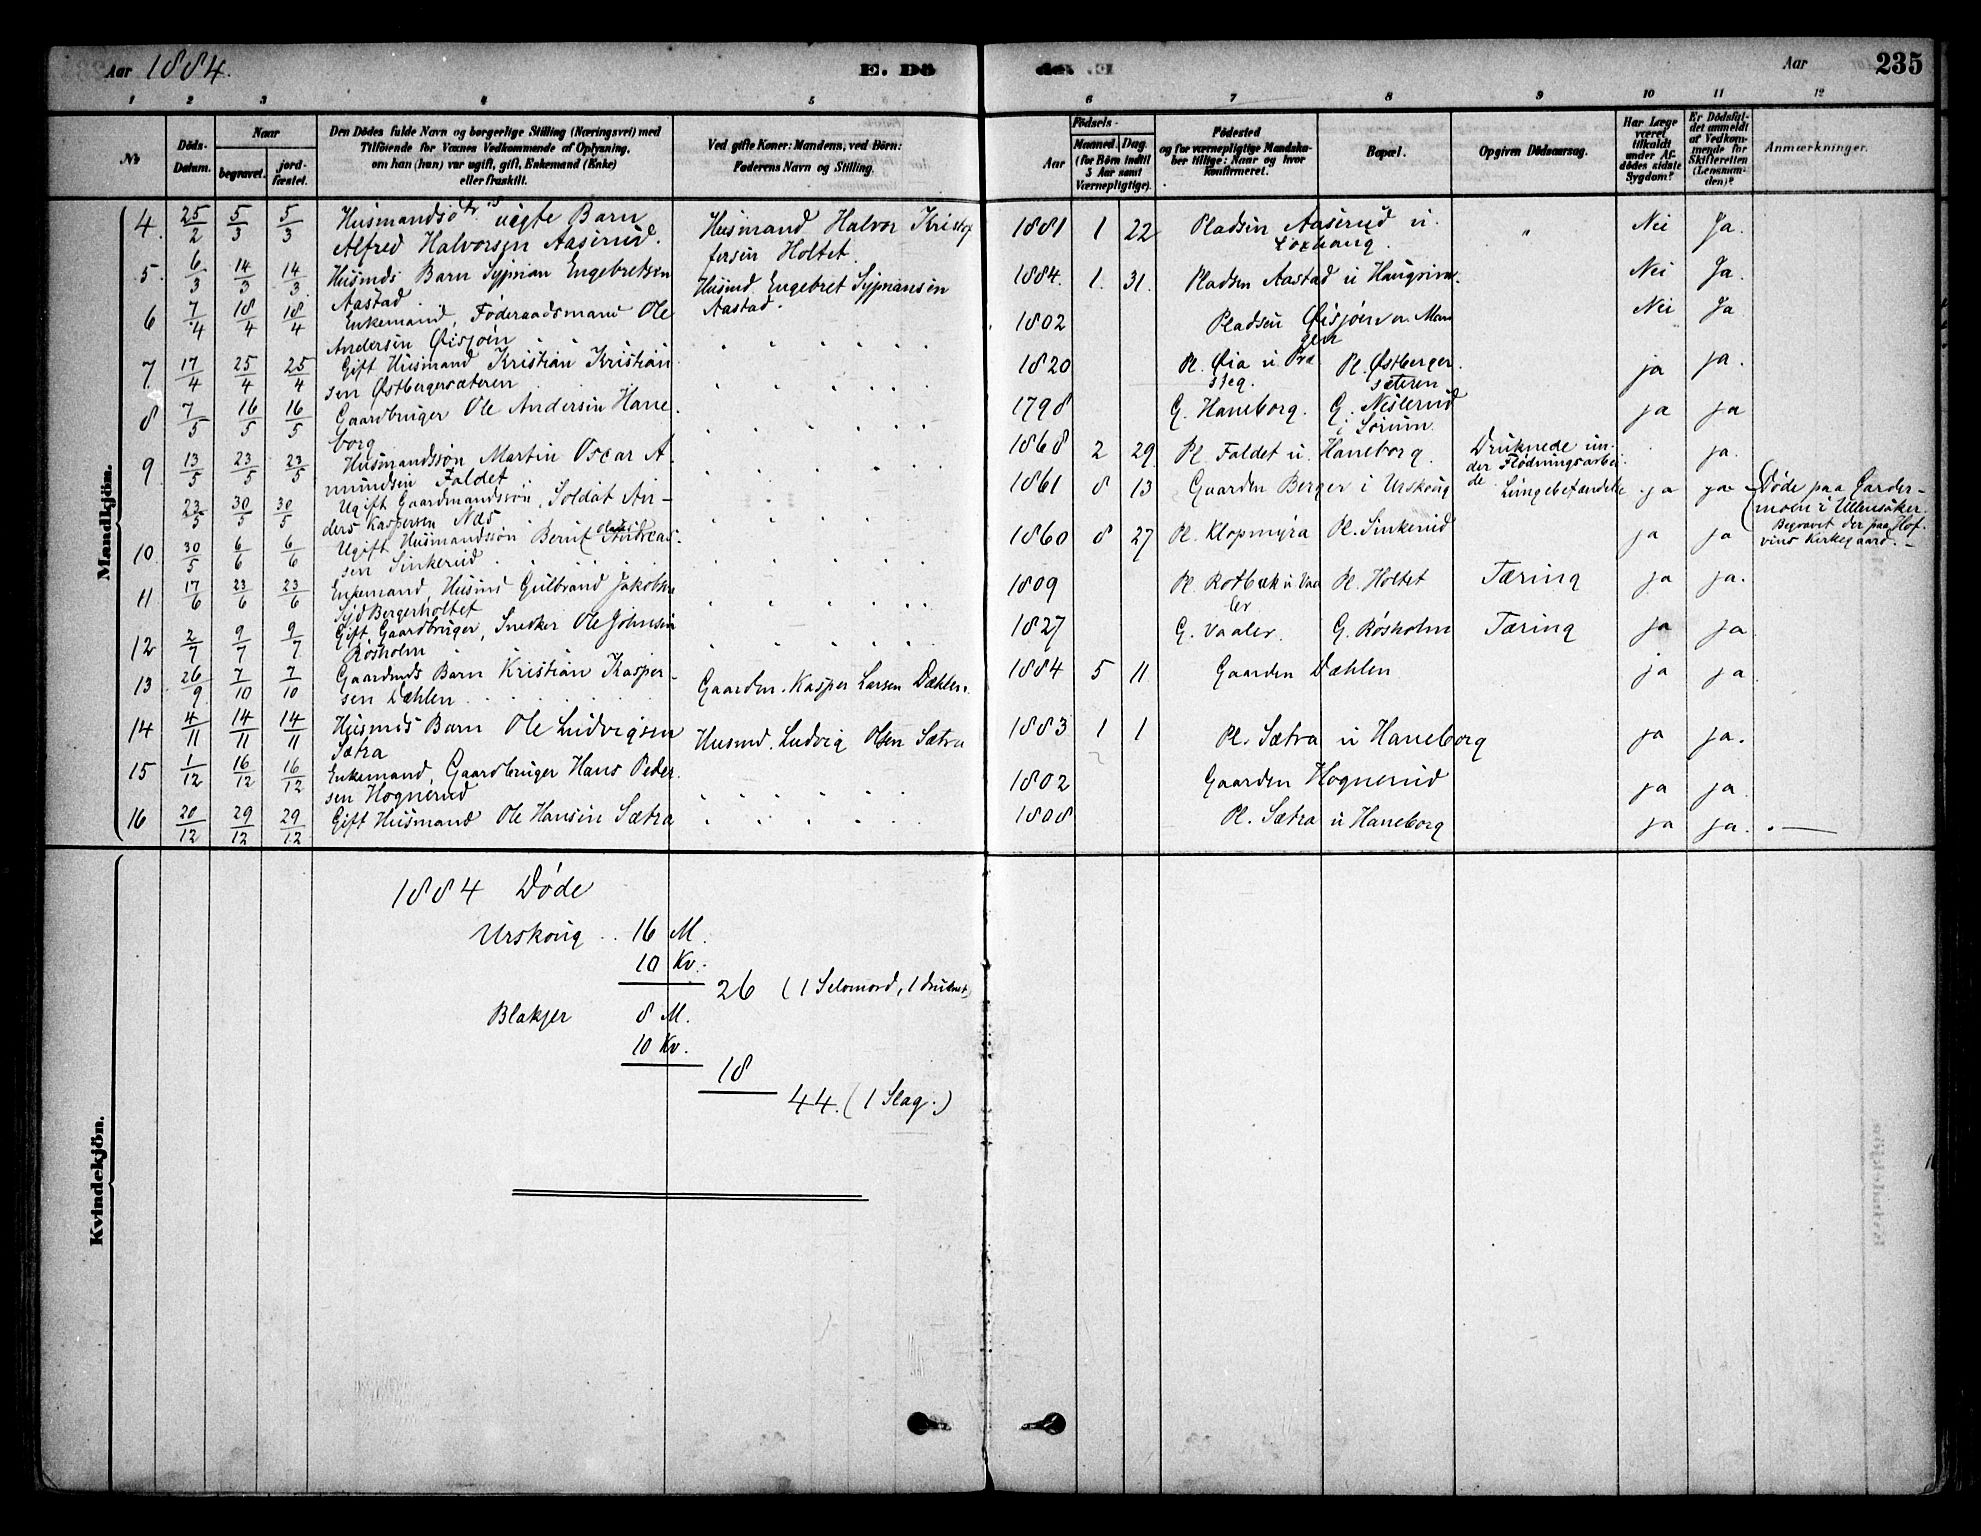 Aar 1884. E. Dö Aar 235
1 2 3 4 5 6 7 8 9 10 11 12
No
Döds-Datum.
Naar
begravet.
jord-fæstet.
Den Dödes fulde Navn og borgerlige Stilling (Næringsvei) med
Tilföiende for Voxnes Vedkommende af Oplysning,
om han (hun) var ugift, gift, Enkemand (Enke)
eller fraskilt.
Ved gifte Koner: Mandens, ved Börn:
Faderens Navn og Stilling.
Födsels-
Aar
Maaned. Dag.
(for Börn indtil
5 Aar samt
Værnepligtige).
Födested
og for værnepligtige Mandska-
ber tillige: Naar og hvor
konfirmeret.
Bopæl.
Opgiven Dödsaarsag.
Har Læge
været
tilkaldt
under Af-
dödes sidste
Sygdom?
Er Dödsfal-
det anmeldt
af Vedkom-
mende for
Skifteretten
(Lensman-
den)?
Anmærkninger.
Mandkjön.
4. 25/2 5/3 5/3 uægte Barn Husmand Halvor Kristof 1881 1 22 Pladsen Aaserud u. " Nei Ja.
Alfred Halvorsen Aaserud. fersen Holtet.
5. 6/3 14/3 14/3 Husmds Barn Sypman Engebretsen Husmd. Engebret Sypmansen 1884. 1. 31. Pladsen Aastad u Nei Ja.
Aastad. Aastad.
6 7/4 18/4 18/4 Enkemand, Föderaadsmand Ole 1802 Pladsen Øisjøen Nei Ja
Andersen Øisjøen
7. 17/4 25/4 25/4 Gift Husmand Kristian Kristian 1820 Pl. Øia u Præ Pl. Østberger ja ja.
sen Østbergersæteren steg. sæteren
8 7/5 16/5 16/5 Gaardbruger Ole Andersen Hane 1798 G. Haneborg. G. Neslerud ja ja
borg i Sørum
9 13/5 23/5 23/5 Husmandssön Martin Oscar A 1868 2 29 Pl. Foldet u. Haneborg. Druknede un- ja.
mundsen Foldet der Flödningsarbei-
de
23/5 30/5 30/5 Ugift Gaardmandssön, Soldat An- 1861 8 13 Gaarden Berger i Urskoug Lungebetændelse ja ja Døde paa Garder-
ders Kaspersen Næs moen i Ullensaker.
Begravet der paa Hof-
vins Kirkegaard.
10. 30/5 6/6 6/6 Ugift Husmandssön Bernt Andreas- 1860 8 27 Pl. Klopmyra Pl. Sinkerud ja ja
sen Sinkerud
11 17/6 23/6 23/6 Enkemand, Husmd Gulbrand Jakobsen 1809 Pl. Rotbæk u Vaa Pl. Holtet Tæring ja ja.
Syd Bergerholtet ler
12 2/7 9/7 9/7 Gift Gaardbruger, Snedker Ole Johnsen 1827 G. Vaaler. G. Rosholm Tæring ja ja
Rosholm
13 26/9 7/10 7/10 Gaardmds Barn Kristian Kasper- Gaardm. Kasper Larsen Dæhlen. 1884 5 11 Gaarden Dæhlen ja ja
sen Dæhlen
14 4/11 14/11 14/11 Husmds Barn Ole Ludvigsen Husmd. Ludvig Olsen Sætra 1883 1 1 Pl. Sætra u Haneborg ja ja.
Sætra
15 1/12 16/12 16/12 Enkemand, Gaardbruger Hans Peder 1802 Gaarden Hognerud ja ja
sen Hognerud
16 20/12 29/12 29/12 Gift Husmand Ole Hansen Sætra 1808 Pl. Sætra u Haneborg ja ja.
Kvindekjön.
1884 Døde
Urskoug .. 16 M.
10 Kv.
26 (1 Selvmord, 1 druknet)
Blakjer 8 M.
10 Kv.
18
44. (1 Slag.)